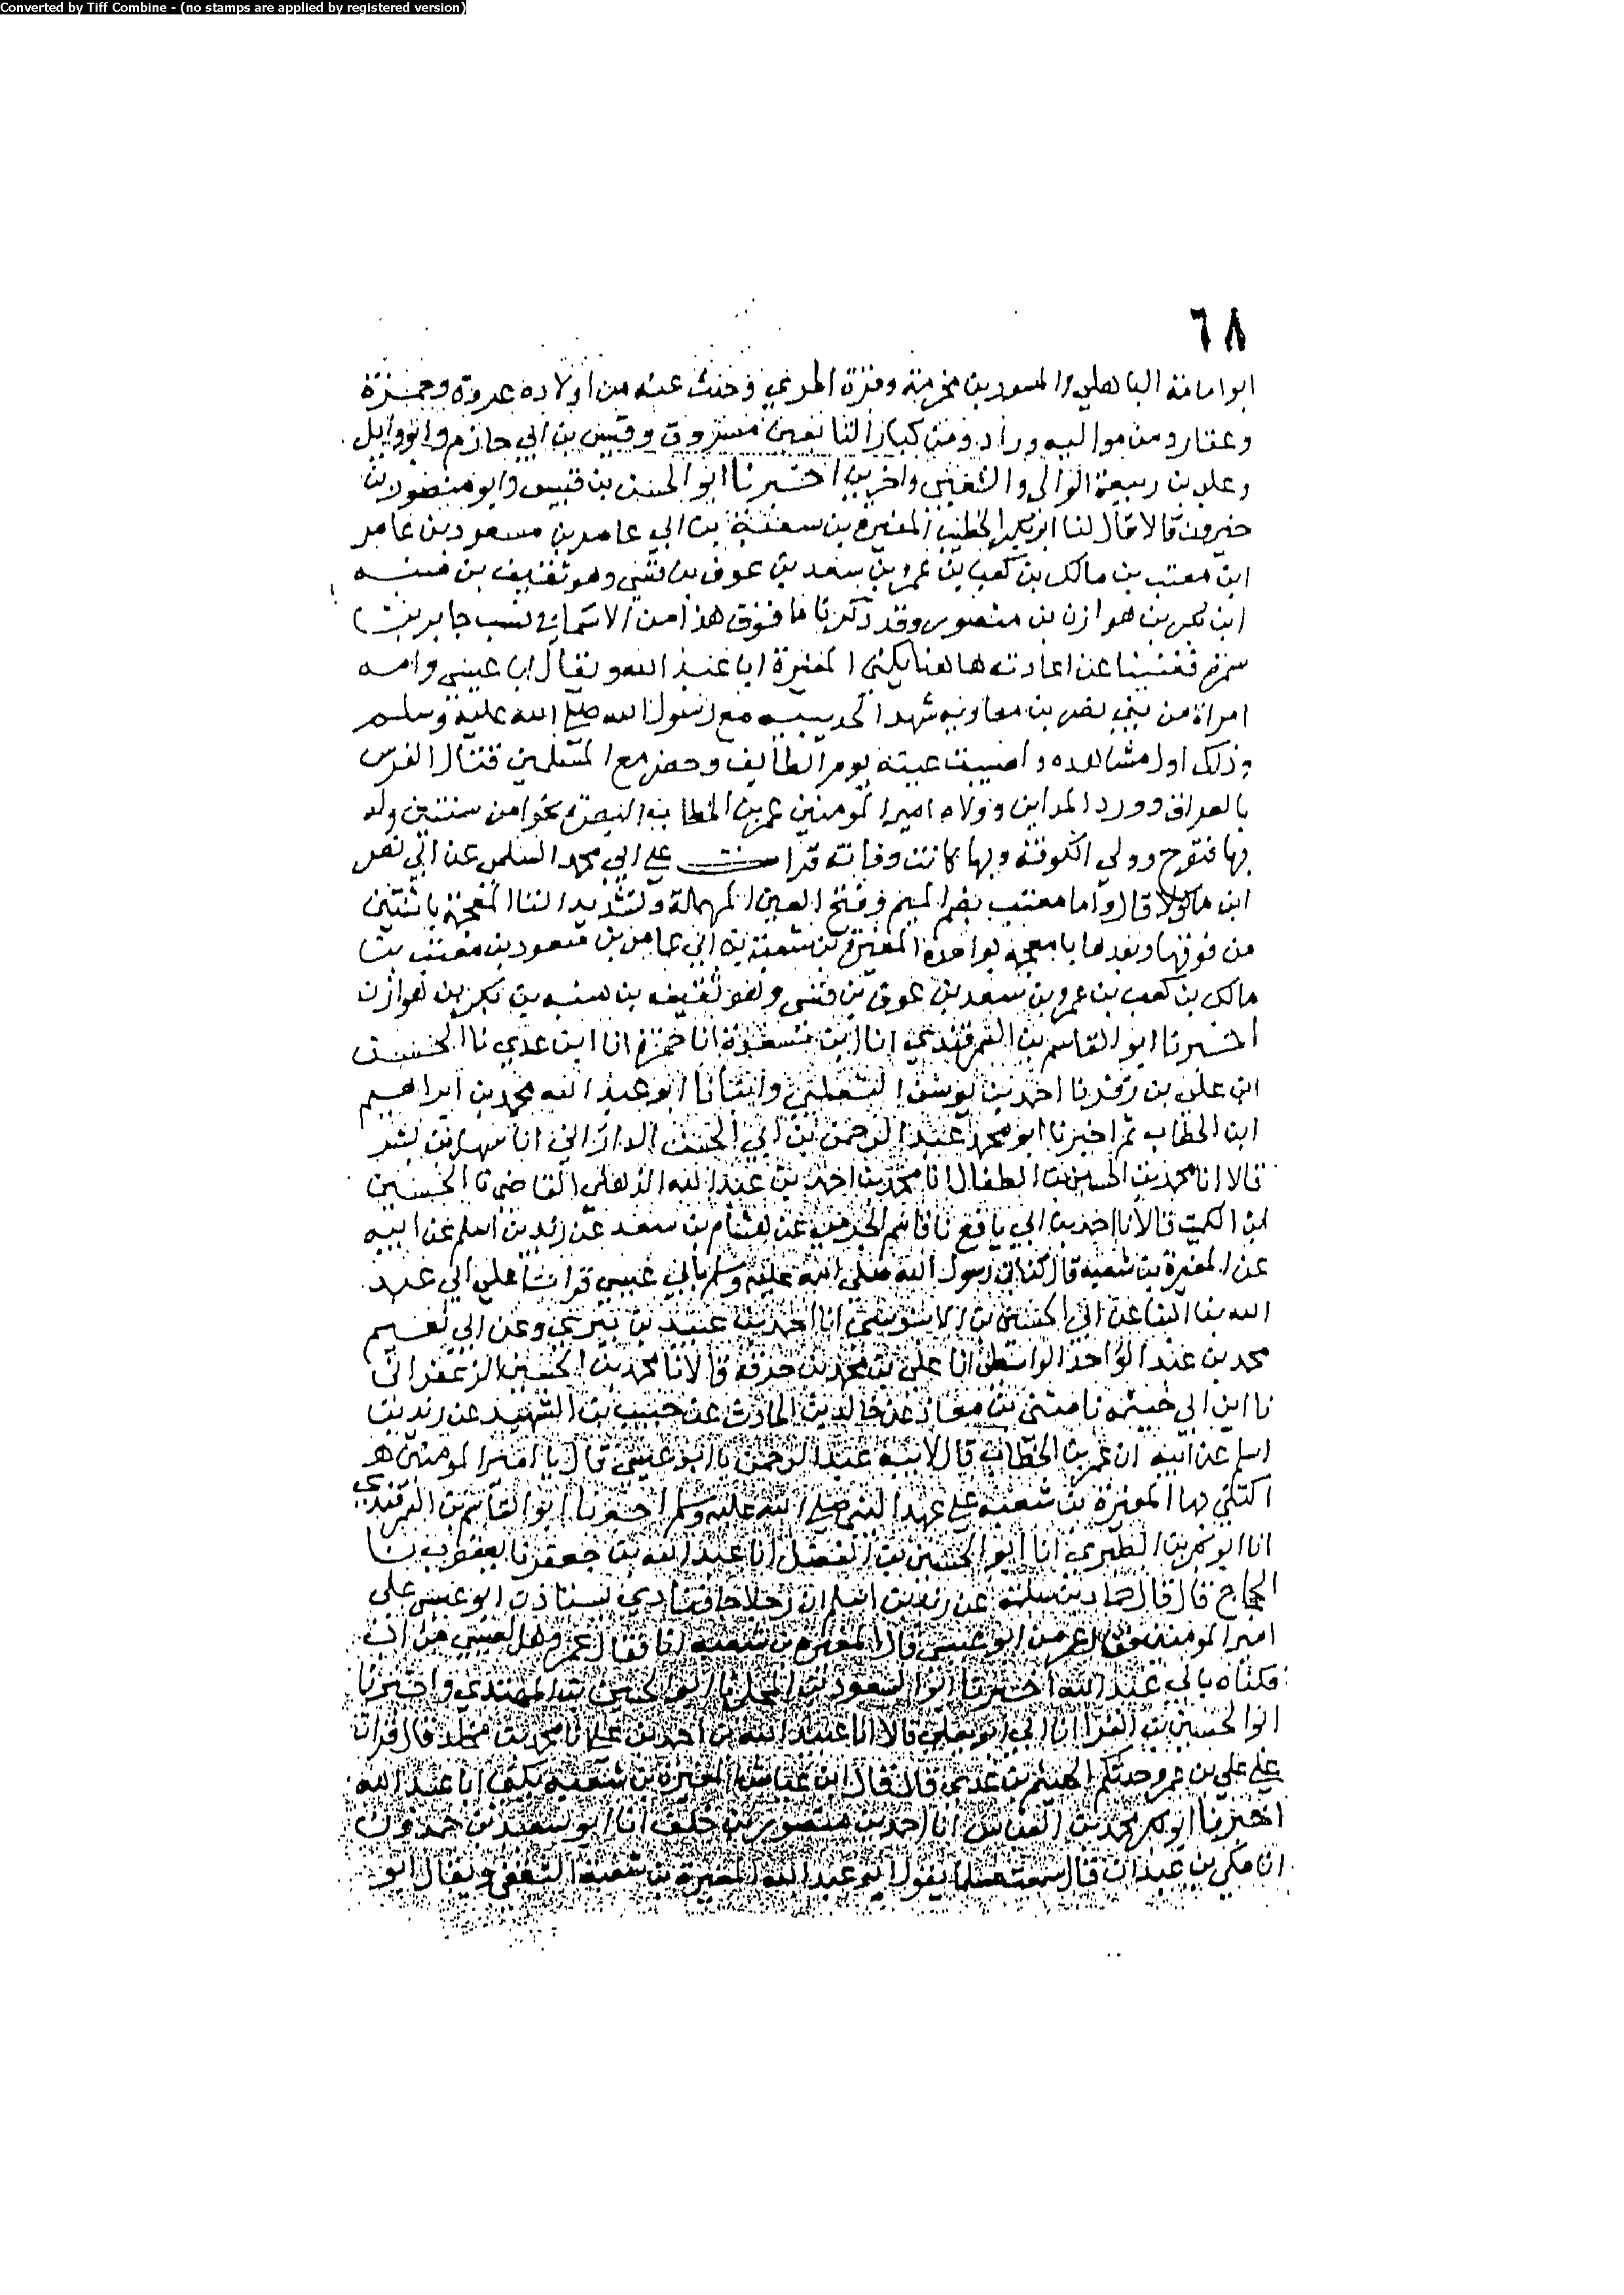 Converted by Tiff Combine - (no stamps are applied by registered version)
٦٨
ابو امامة الباهلي والمسور بن مخرمة وقرة المزني وحدث عنه من اولاده عروة وحمزة
وعقار ومن مواليه وراد ومن كبار التابعين مسروق وقيس بن ابي حازم وابو وايل
وعلي بن ربيعة الوالبي والشعبي واخرين اخبرنا ابو الحسن بن قبيس وابو منصور بن
خيرون قالا قال لنا ابو بكر الخطيب المغيرة بن شعبة بن ابي عامر بن مسعود بن عامر
ابن معتب بن مالك بن كعب بن عمرو بن سعد بن عوف بن قسي وهو ثقيف بن منبه
ابن بكر بن هوازن بن منصور وقد ذكرنا ما فوق هذا من الاسماء في نسب جابر بن
سمرة فغنينا عن اعادته هاهنا يكنى المغيرة ابا عبد الله ويقال ابا عيسى وامه
امراة من بني نصر بن معاوية شهد الحديبية مع رسول الله صلى الله عليه وسلم
وذلك اول مشاهده واصيبت عينه يوم الطايف وحضر مع المسلمين قتال الفرس
بالعراق وورد المداين وولاه امير المومنين عمر بن الخطاب البصرة نحوا من سنتين وله
بها فتوح وولي الكوفة وبها كانت وفاته قرات على ابي محمد السلمي عن ابي نصر
ابن ماكولا قال واما معتب بضم الميم وفتح العين المهملة وتشديد التا المعجمة باثنتين
من فوقها وبعدها با معجمة بواحدة المغيرة بن شعبة بن ابي عامر بن مسعود بن معتب بن
مالك بن كعب بن عمرو بن سعد بن عوف بن قسي وهو ثقيف بن منبه بن بكر بن هوازن
اخبرنا ابو القاسم بن السمرقندي انا ابن مسعدة انا حمزة انا ابن عدي نا الحسن
ابن علي بن زفر نا احمد بن يونس وانبانا ابو عبد الله محمد بن ابراهيم
ابن الخطاب ثم اخبرنا ابو محمد عبد الرحمن بن ابي الحسن الداراني انا سهل بن بشر
قالا انا محمد بن الحسين بن الطفال انا محمد بن احمد بن عبد الله الذهلي القاضي نا الحسين
ابن الكميت قالا نا احمد بن ابي نافع نا قاسم الجرمي عن هشام بن سعد عن زيد بن اسلم عن ابيه
عن المغيرة بن شعبة قال كناني رسول الله صلى الله عليه وسلم بابي عيسى قرات على ابي عبد
الله بن البنا عن ابي الحسين بن الابنوسي انا احمد بن عبيد بن بيري وعن ابي نعيم
محمد بن عبد الواحد الواسطي انا علي بن محمد بن خزفة قالا نا محمد بن الحسين الزعفراني
نا ابن ابي خيثمة نا مثنى بن معاذ عن خالد بن الحارث عن حبيب بن الشهيد عن زيد بن
اسلم عن ابيه ان عمر بن الخطاب قال لابنه عبد الرحمن يا ابو عيسى قال يا امير المومنين هو
اكتنى بها المغيرة بن شعبة على عهد النبي صلى الله عليه وسلم اخبرنا ابو القاسم بن السمرقندي
انا ابو بكر بن الطبري انا ابو الحسين بن الفضل انا عبد الله بن جعفر نا يعقوب نا
الحجاج قال قال حماد بن سلمة عن زيد بن اسلم ان رجلا جا فنادى يستاذن ابو عيسى على
امير المومنين فقال عمر من ابو عيسى قال المغيرة بن شعبة انا فقال عمر وهل لعيسى من اب
فكناه بابي عبد الله اخبرنا ابو السعود بن المجلي نا ابو الحسين بن المهتدي واخبرنا
ابو الحسين بن الفرا انا ابي ابو يعلى قالا انا عبيد الله بن احمد بن علي انا محمد بن مخلد قال قرات
على علي بن عمرو حدثكم الهيثم بن عدي قال قال ابن عياش المغيرة بن شعبة يكنى ابا عبد الله
اخبرنا ابو بكر محمد بن العباس انا احمد بن منصور بن خلف انا ابو سعيد بن حمدون
انا مكي بن عبدان قال سمعت مسلما يقول ابو عبد الله المغيرة بن شعبة الثقفي ويقال ابو